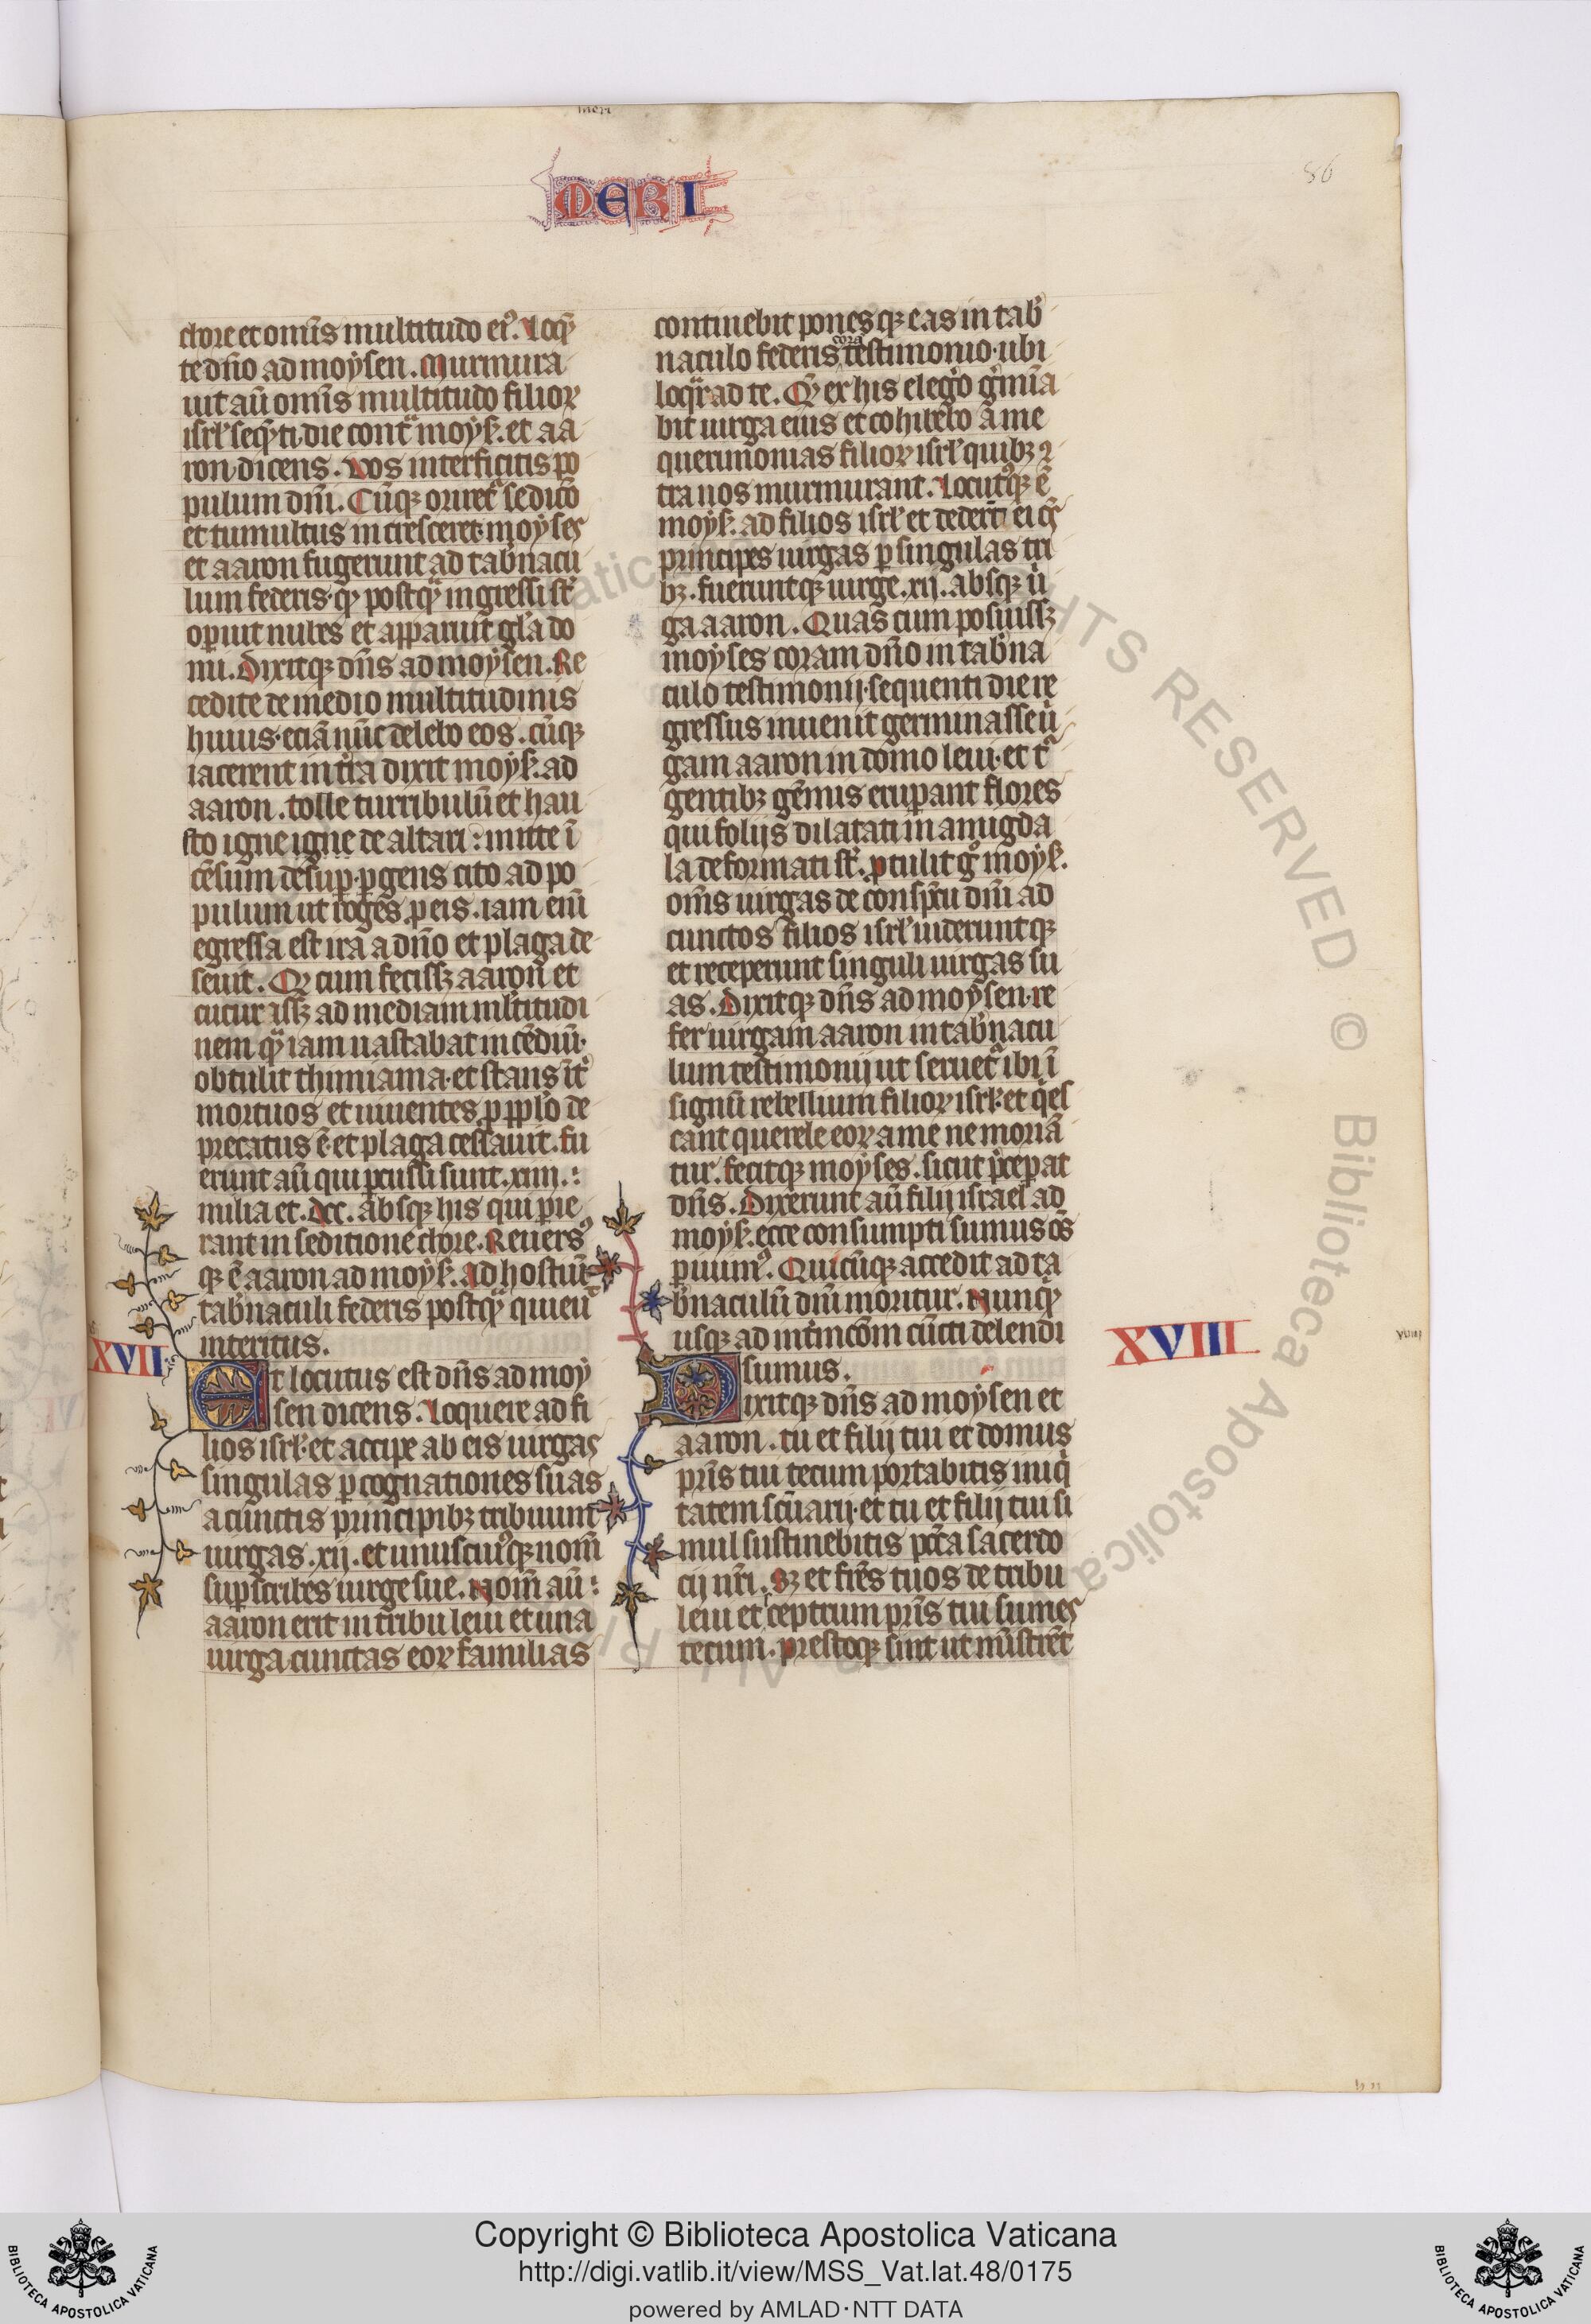 meri
MERI
86
chore et om̄is multitudo ei⁹. Loq̄n
te dn̄o ad moysen. Murmura
uit aū om̄is multitudo filioꝝ
isrl̓ seq̄nti die contᷓ moyß. et aa
ron dicens. Vos interficitis po
pulum dn̄i. Cūqꝫ orireᷓt sedicō
et tumultus incresceret moyses
et aaron fugerunt ad tab̓nacu
lum federis. qd̓ postqᷓ ingressi st̄
operuit nubes et apparuit gl̓a do
mi. Dixitqꝫ dn̄s ad moysen. Re
cedite de medio multitudinis
huius. eciā nūc delebo eos. cūqꝫ
iacerent in tr̄a dixit moyß. ad
aaron. tolle turribulū et hau
sto igne igne de altari: mitte ī
cēsum desuꝑ. ꝑgens cito ad po
pulum ut roges ꝓ eis. iam enī
egressa est ira a dn̄o et plaga de
seuit. Qd̓ cum fecissꝫ aaron et
cucurissꝫ ad mediam ml̓titudi
nem qᷓ iam uastabat incēdiū.
obtulit thimiama. et stans īt̓
mortuos et uiuentes ꝓ pp̄lo de
precatus ē. et plaga cessauit. fu
erunt aū qui ꝑcussi sunt. xiiij.:
milia et. dcc. absqꝫ his qui perie
rant in seditione chore. Reuers⁹
qꝫ ē aaron ad moyß. ad hostiū
tab̓naculi federis postqᷓ quieuᵗ
interitus.
XVII
Et locutus est dn̄s ad moy
sen dicens. Loquere ad fi
lios isrl̓. et accipe ab eis uirgas
singulas ꝑ cognationes suas
a cunctis principibꝫ tribuum
uirgas. xij. et unuscui⁹qꝫ nom̄
suꝑscribes uirge sue. Nom̄ aū:
aaron erit in tribu leui et una
uirga cunctas eoꝝ familias
continebit ponesqꝫ eas in tab̓
naculo federis corā testimonio. ubi
loqᷓr ad te. Qm̄ ex his eleg̓o g̓mīa
bit uirga eius et cohibebo a me
querimonias filioꝝ isrl̓ quibꝫ ꝯ
tra uos murmurant. Locut⁹qꝫ ē
moyß. ad filios isrl̓ et dederūt ei oēs
principes uirgas ꝑ singulas tri
bꝫ. fueruntqꝫ uirge. xij. absqꝫ uⁱ
ga aaron. Quas cum posuissꝫ
moyses coram dn̄o in tab̓na
culo testimonij. sequenti die re
gressus inuenit germinasse uⁱ
gam aaron in domo leui. et tᷓ
gentibꝫ gēmis eruperant flores
qui folijs dilatati in amigda
la deformati st̄. ꝓtulit gᵒ moyß.
om̄s uirgas de conspc̄tu dn̄i ad
cunctos filios isrl̓ uideruntqꝫ
et receperunt singuli uirgas su
as. Dixitqꝫ dn̄s ad moysen. re
fer uirgam aaron in tab̓nacu
lum testimonij ut serueᷓt ibi ī
signū rebellium filioꝝ isrl̓. et qⁱes
cant querele eoꝝ a me ne moriā
tur. fecitqꝫ moyses. sicut p̄ceperat
dn̄s. Dixerunt aū filij israel ad
moyß. ecce consumpti sumus oēs
perium⁹. Quicūqꝫ accedit ad ta
b̓naculū dn̄i moritur. Nunqⁱd
usqꝫ ad int̓nicōm cūcti delendi
sumus.
XVIII
xviii
Dixitqꝫ dn̄s ad moysen et
aaron. tu et filij tui et domus
pr̄is tui tecum portabitis iniqⁱ
tatem scūarij. et tu et filij tui si
mul sustinebitis pcc̄a sacerdo
cij ur̄i. Sꝫ et fr̄es tuos de tribu
leui et sceptrum pr̄is tui sumes
tecum. prestoqꝫ sint ut mīstrēt
Copyright © Biblioteca Apostolica Vaticana
http://digi.vatlib.it/view/MSS_Vat.lat.48/0175
powered by AMLAD·NTT DATA
BIBLIOTECA APOSTOLICA VATICANA
BIBLIOTECA APOSTOLICA VATICANA